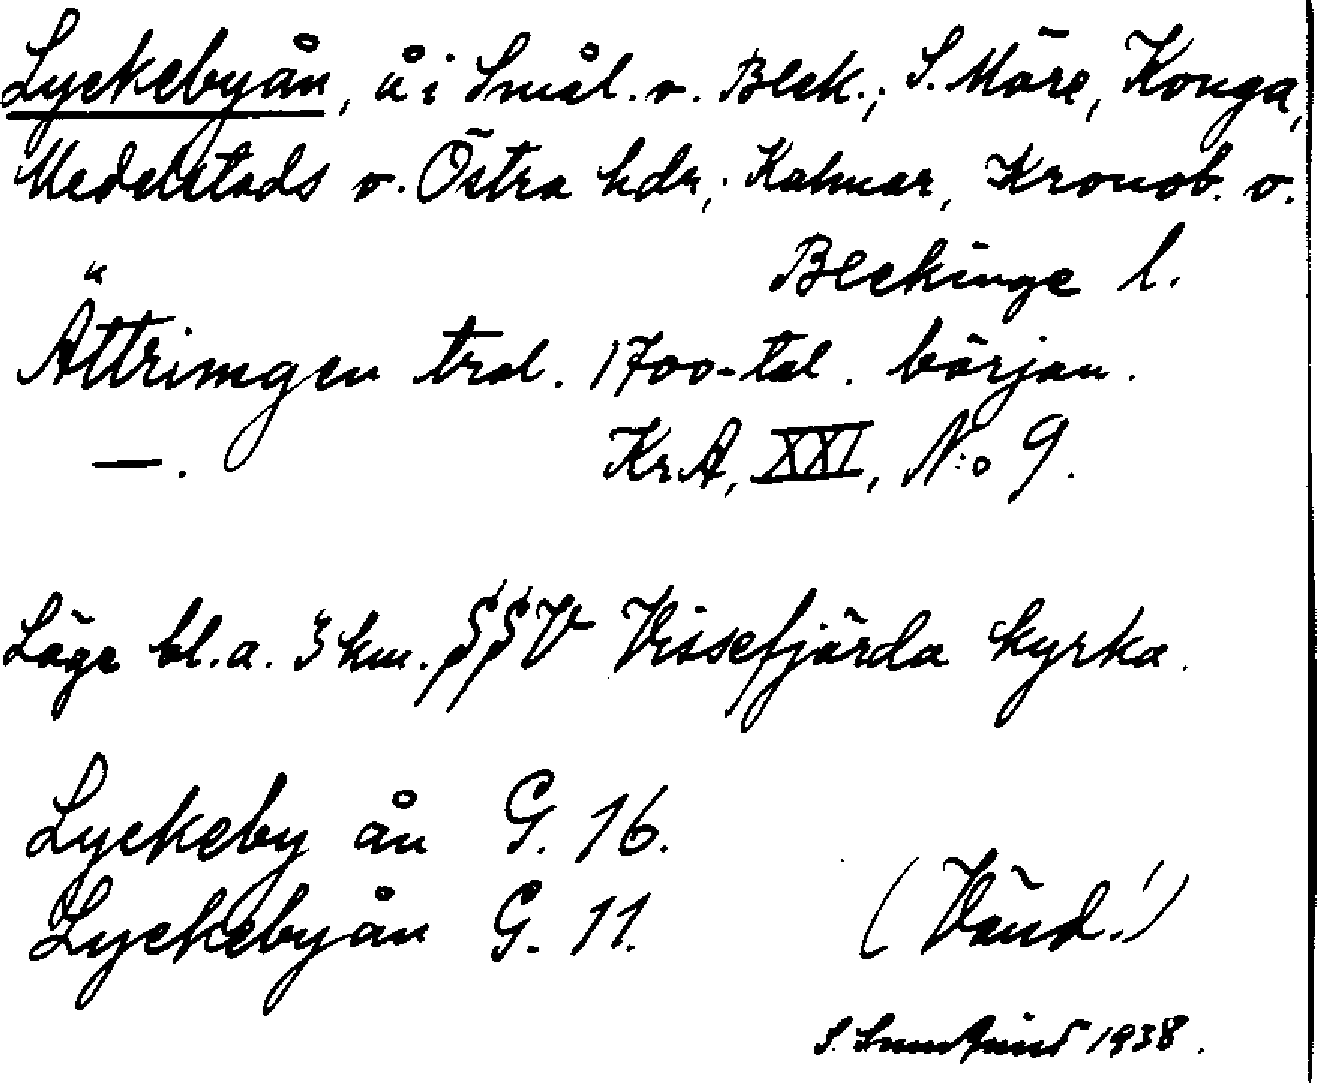 Lyckebyån, å i Smål. o. Blek.; S. Möre, Konga,
Medelstads o. Östra hdr; Kalmar, Kronob. o.
Blekinge l.
Ättrimgen trol. 1700-tal. början.
—. KrA, XXI, N:o 9.
Läge bl.a. 3 km. SSV Vissefjärda kyrka.
Lyckeby ån G. 16.
Lyckebyån G. 11.
(Vänd!)
S. 1938.